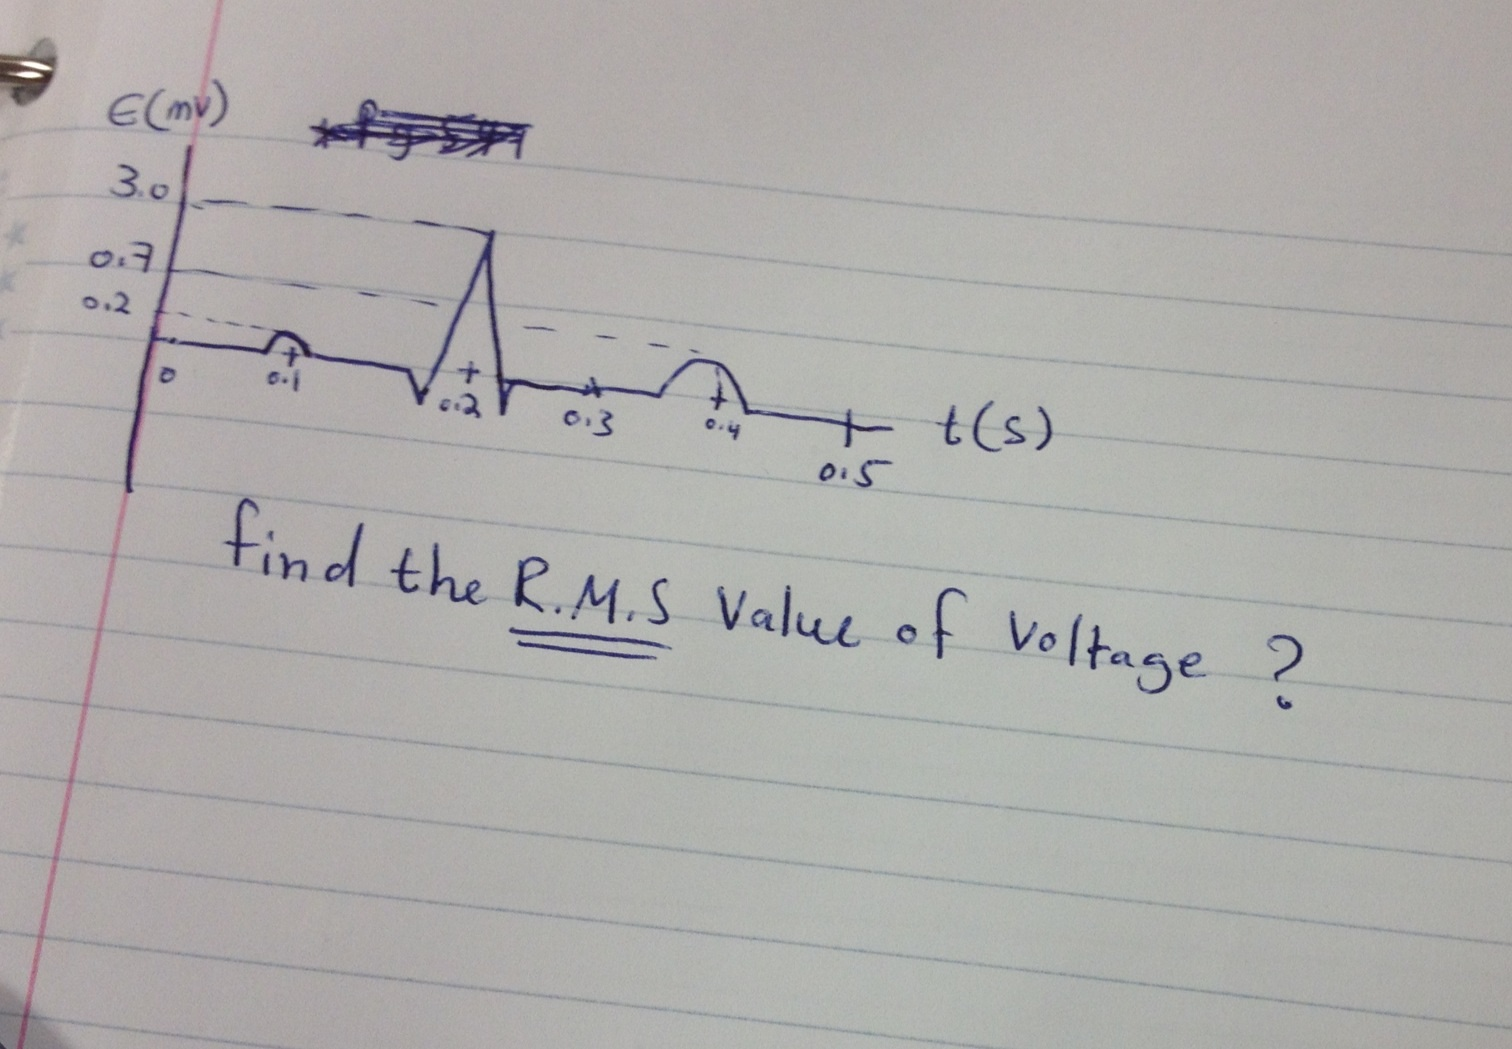 E(mv)
3.0
0.7
0.2
0
0.1
0.2
0.3
0.4
0.5
t(s)
find the R.M.S Value of Voltage ?